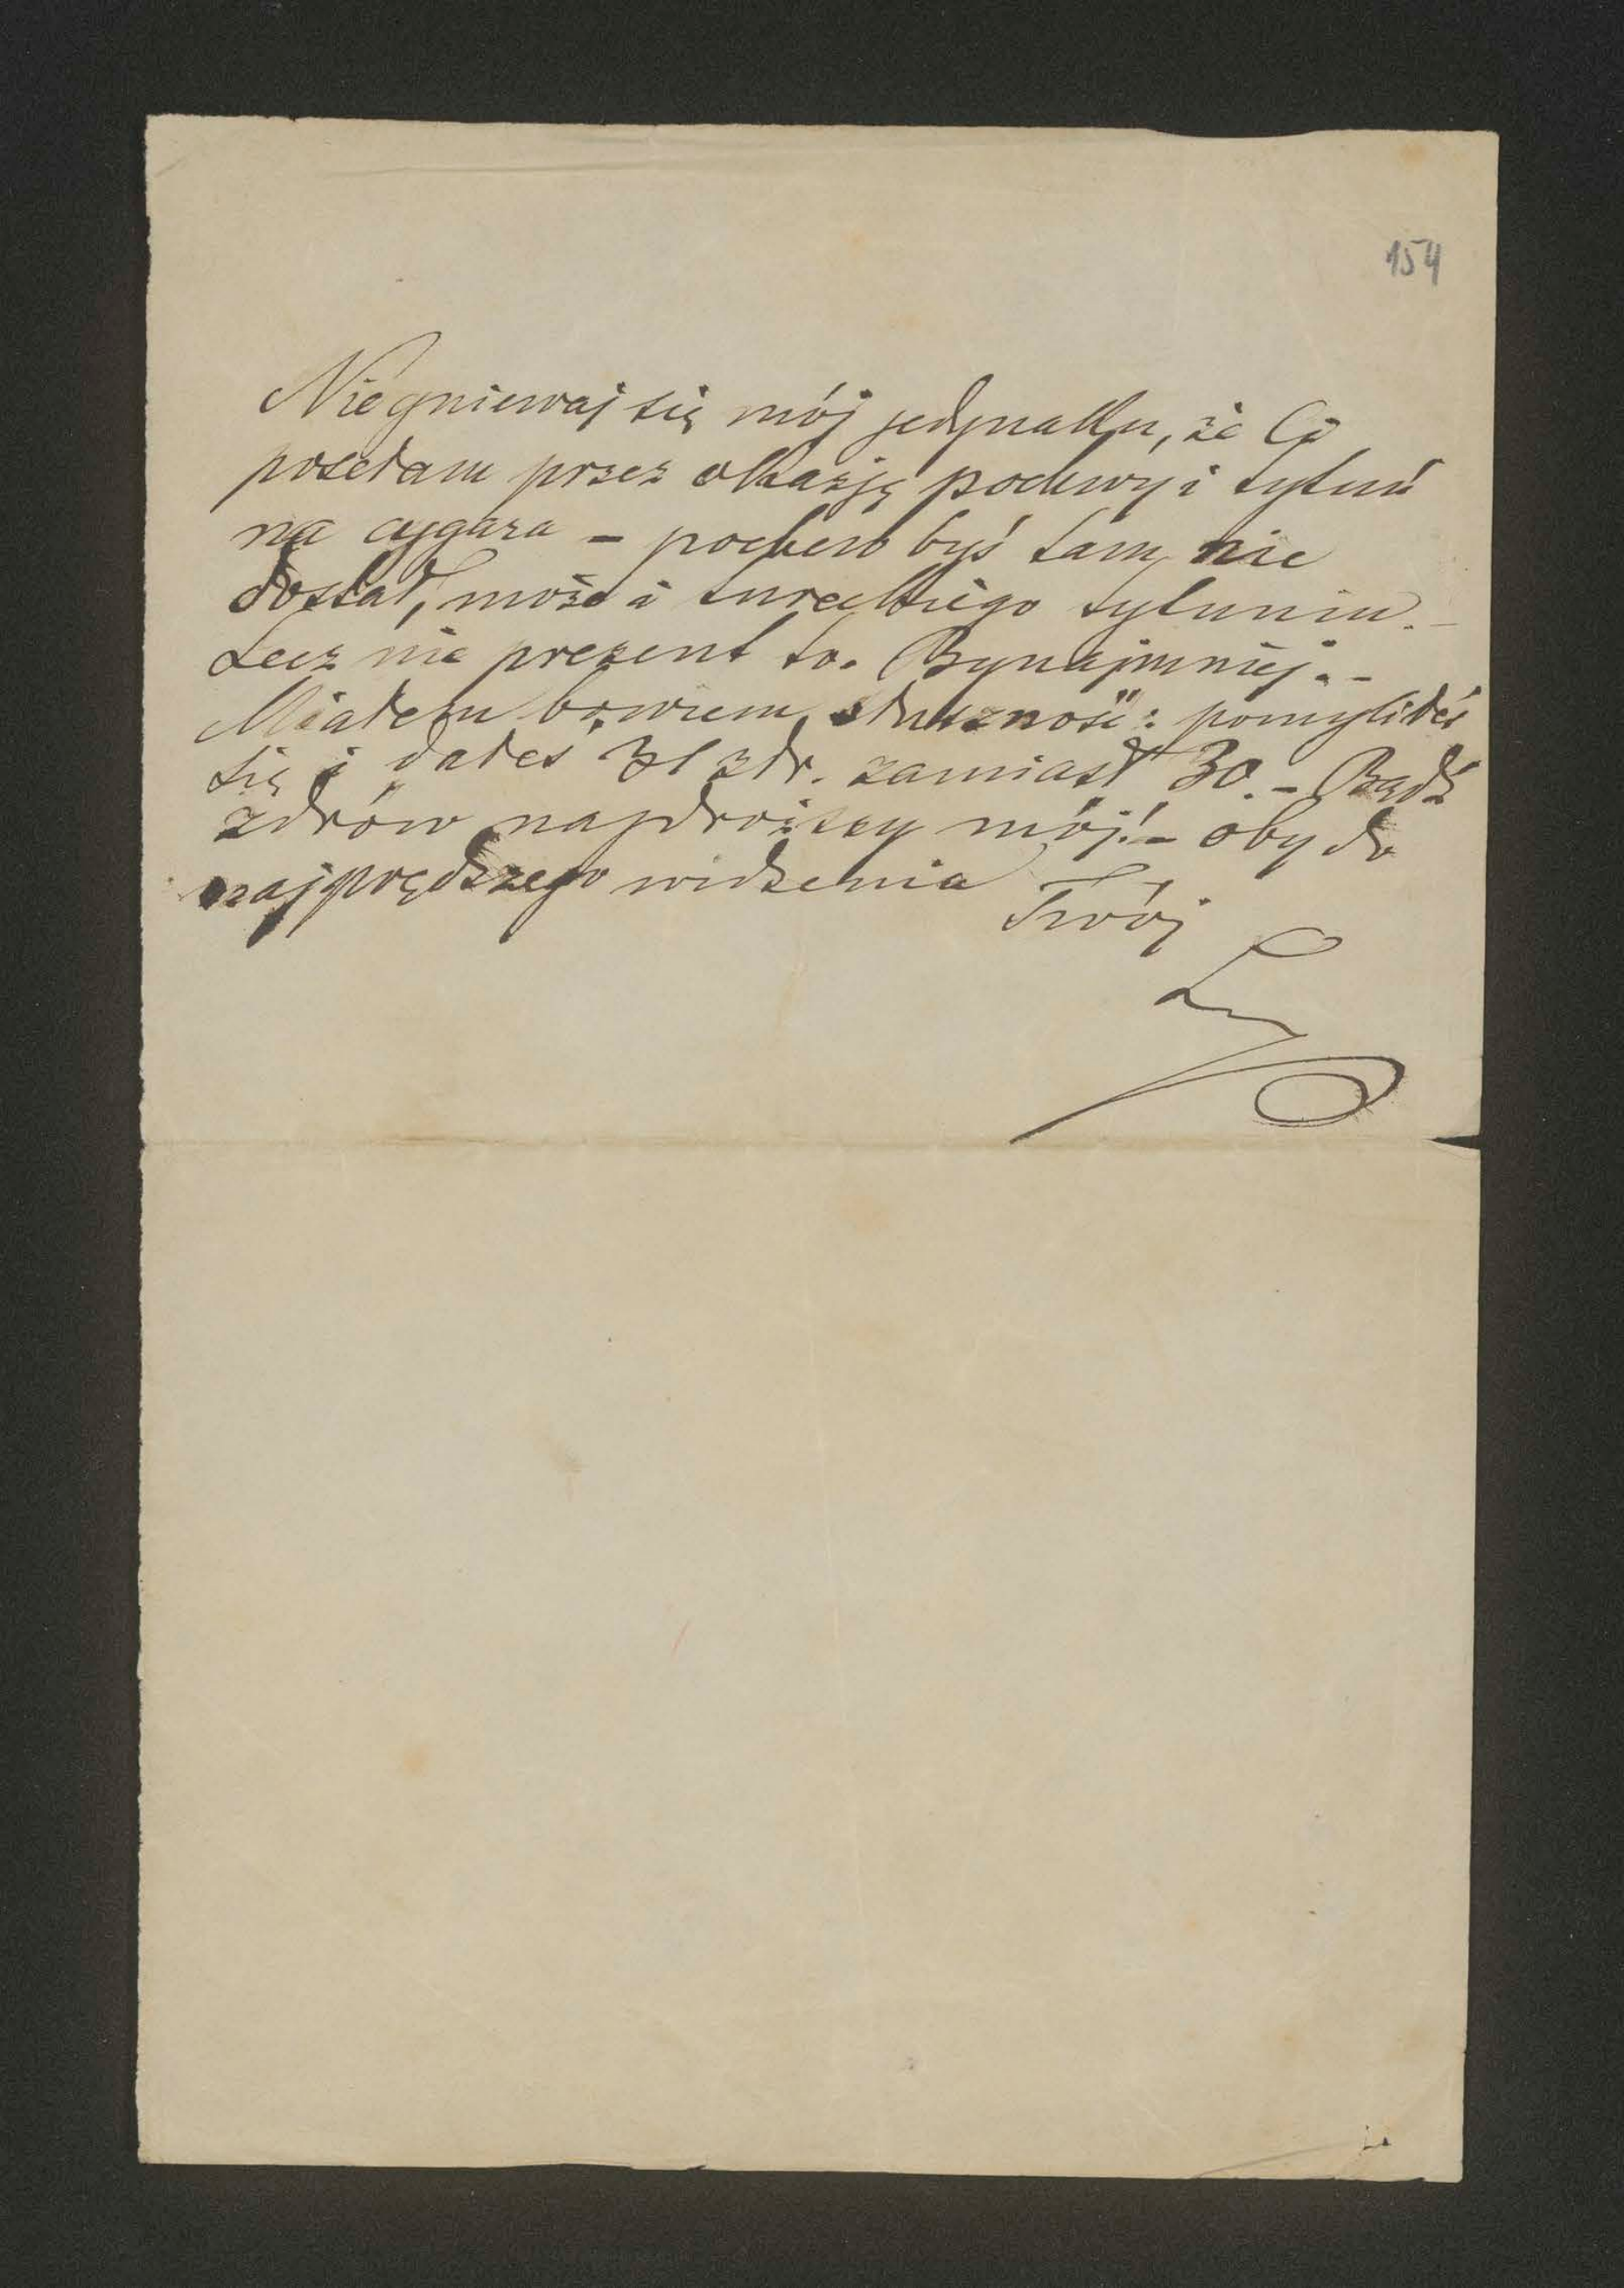 154
Nie gniewaj się mój jedynaku, że Ci
posełam przez okazję podewy i tytuń
na cygara – podew byś tam nie
dostał, może i tureckiego tytuniu. –
Lecz nie prezent to. Bynajmniej. –
Miałem bowiem słuszność: pomyliłeś
się i dałeś 31 złr. zamiast 30. – Bądź
zdrów najdroższy mój! – oby do
najprędszego widzenia
Twój